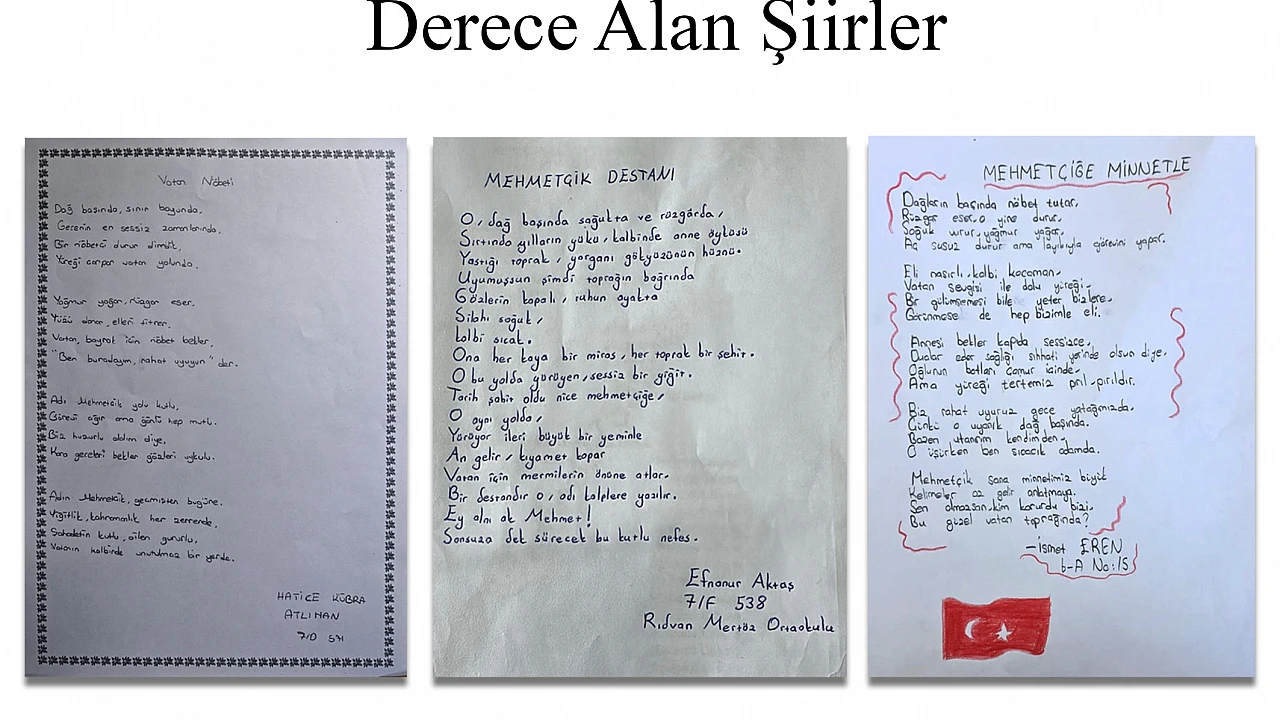 Derece Alan Şiirler
Vatan Nöbeti
Dağ başında, sınır boyunda,
Gecenin en sessiz zamanlarında,
Bir nöbetçi durur dimdik,
Yüreği çarpar vatan yolunda.
Yağmur yağar, rüzgar eser.
Yüzü donar, elleri titrer.
Vatan, bayrak için nöbet bekler,
"Ben buradayım, rahat uyuyun" der.
Adı Mehmetçik yolu kutlu,
Görevi ağır ama gönlü hep mutlu.
Biz huzurlu olalım diye,
Kara geceleri bekler gözleri uykulu.
Adın Mehmetçik, geçmişten bugüne.
Yiğitlik, kahramanlık her zerrende,
Şehadetin kutlu, ailen gururlu,
Vatanın kalbinde unutulmaz bir yerde.
HATİCE KÜBRA
ATLIHAN
7/D 571
MEHMETÇİK DESTANI
O, dağ başında soğukta ve rüzgârda,
Sırtında yılların yükü, kalbinde anne öyküsü
Yastığı toprak, yorganı gökyüzünün hüznü.
Uyumuşsun şimdi toprağın bağrında
Gözlerin kapalı, ruhun ayakta
Silahı soğuk,
kalbi sıcak.
Ona her kaya bir miras, her toprak bir şehir.
O bu yolda yürüyen, sessiz bir yiğit.
Tarih şahit oldu nice mehmetçiğe,
O aynı yolda,
Yürüyor ileri büyük bir yeminle
An gelir, kıyamet kopar
Vatan için mermilerin önüne atlar.
Bir destandır o, adı kalplere yazılır.
Ey alnı ak Mehmet!
Sonsuza dek sürecek bu kutlu nefes.
Efnanur Aktaş
7/F 538
Rıdvan Mertöz Ortaokulu
MEHMETÇİĞE MİNNETLE
Dağların başında nöbet tutar,
Rüzgar eser, o yine durur.
Soğuk vurur, yağmur yağar,
Aç susuz durur ama layıkıyla görevini yapar.
Eli nasırlı, kalbi kocaman,
Vatan sevgisi ile dolu yüreği.
Bir gülümsemesi bile yeter bizlere,
Görünmese de hep bizimle eli.
Annesi bekler kapıda sessizce,
Dualar eder sağlığı sıhhati yerinde olsun diye.
Oğlunun botları çamur içinde,
Ama yüreği tertemiz pırıl pırıldır.
Biz rahat uyuruz gece yatağımızda,
Çünkü o uyanık dağ başında.
Bazen utanırım kendimden,
O üşürken ben sıcacık odamda.
Mehmetçik sana minnetimiz büyük
Kelimeler az gelir anlatmaya.
Sen olmazsan, kim korurdu bizi,
Bu güzel vatan toprağında?
-İsmet EREN
6-A No:15